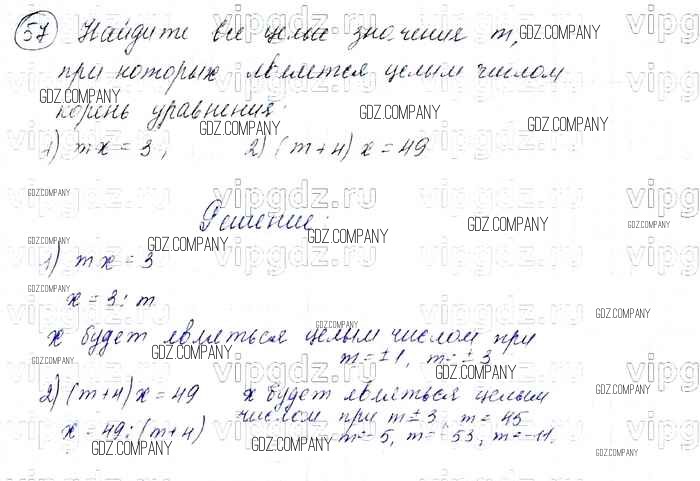 57 Найдите все целые значения m,
при которых является целым числом
корень уравнения:
1) mx = 3, 2) (m+4) x = 49
Решение:
1) mx = 3
x = 3 : m
x будет являться целым числом при
m = ±1, m = ±3
2) (m+4)x = 49 x будет являться целым
числом при m ± 3, m = 45
x = 49 : (m+4) m = -5, m = -53, m = -11.
GDZ.COMPANY
vipgdz.ru